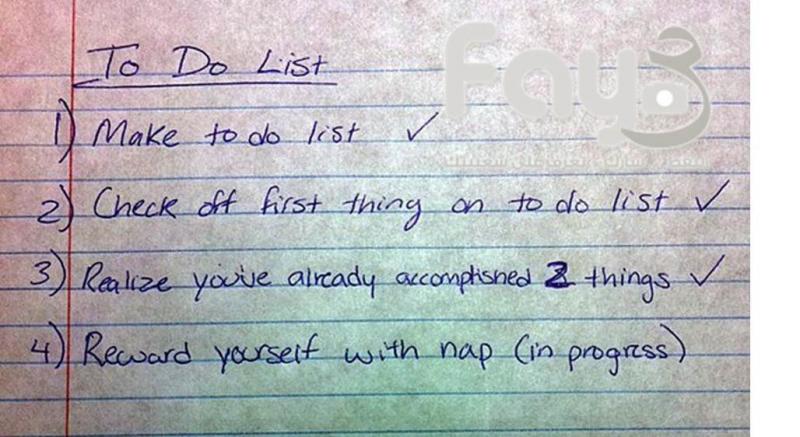 To Do List
1) Make to do list ✓
2) Check off first thing on to do list ✓
3) Realize you've already accomplished 2 things ✓
4) Reward yourself with nap (in progress)
Fay3